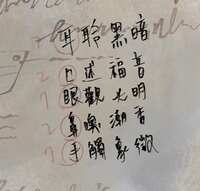 耳聆黑暗
口述福音
眼觀光明
鼻嗅潮香
手觸象徵